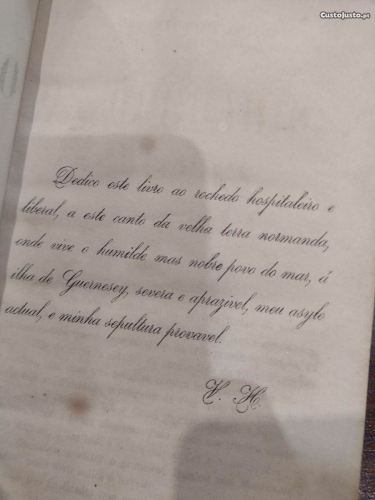 CustoJusto.pt
Dedico este livro ao rochedo hospitaleiro e
liberal, a este canto da velha terra normanda,
onde vive o humilde mas nobre povo do mar, á
ilha de Guernesey, severa e aprazivel, meu asylo
actual, e minha sepultura provavel.
V. H.